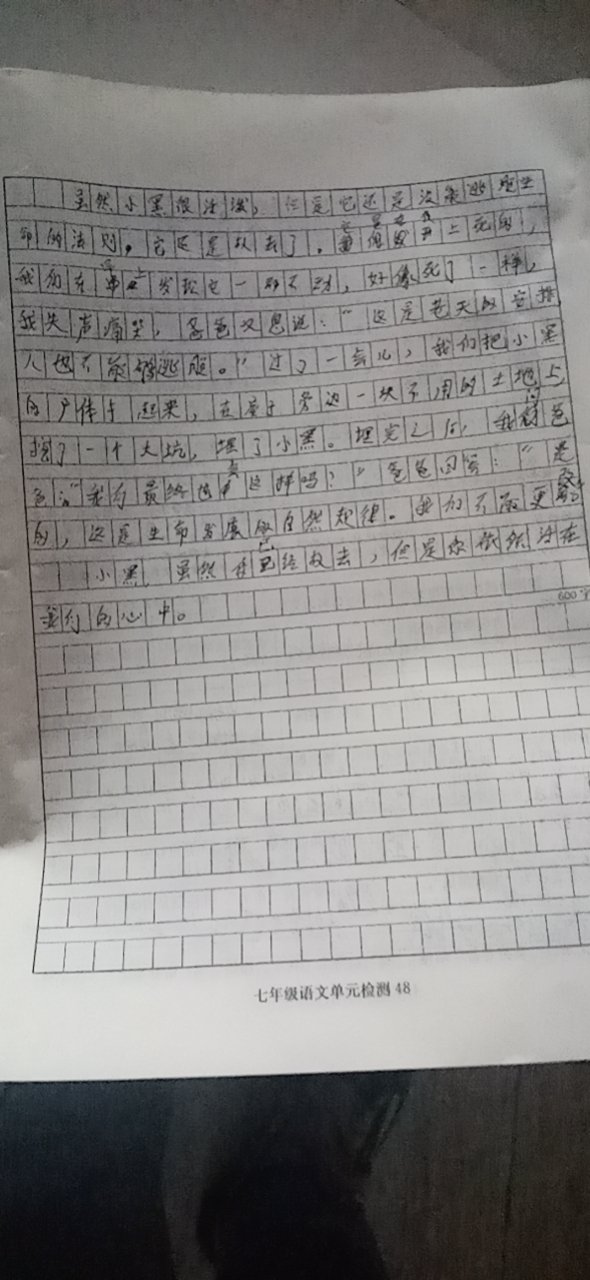 虽然小黑很活泼，但是它还是没能逃脱生
命的法则，它还是长去了。上死的，
我们在发现它一动不动，好像死了一样，
我失声痛哭，爸爸叹息说：“这是老天的安排，
人也不能够逃脱。”过了一会儿，我们把小黑
的尸体卡起来，在房子旁边一块不用的土地上
挖了一个大坑，埋了小黑。埋完之后，我问爸
爸：“我们最终也会这样吗？”爸爸回答：“是
的，这是生命发展的自然规律。我们不能更改
小黑虽然已经故去，但是你依然活在
我们的心中。
600字
七年级语文单元检测 48